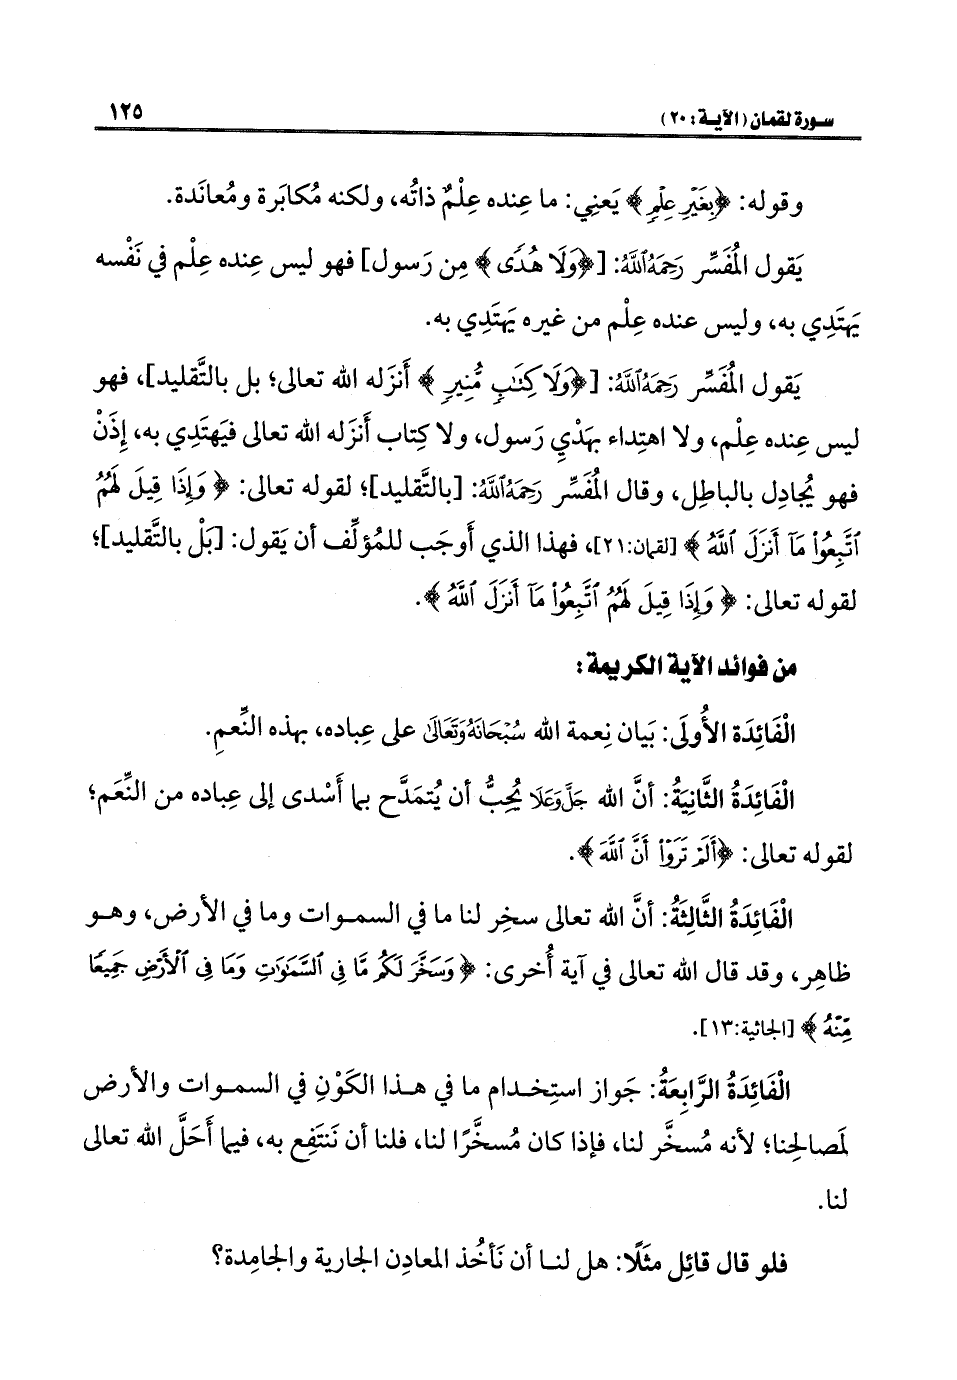 سورة لقمان (الآية: ٢٠)
١٢٥
وقوله: ﴿بِغَيْرِ عِلْمٍ﴾ يَعنِي: ما عِنده عِلْمٌ ذاتُه، ولكنه مُكابَرة ومُعانَدة.
يَقول الْمُفَسِّر رَحِمَهُ اللَّهُ: [﴿وَلَا هُدًى﴾ مِن رَسول] فهو ليس عِنده عِلْم في نَفْسه
يَهتَدِي به، وليس عنده عِلْم من غيره يَهتَدِي به.
يَقول الْمُفَسِّر رَحِمَهُ اللَّهُ: [﴿وَلَا كِتَٰبٍ مُّنِيرٍ﴾ أَنزَله الله تعالى؛ بل بالتَّقليد]، فهو
ليس عِنده عِلْم، ولا اهتِداء بهَدْيِ رَسول، ولا كِتاب أَنزَله الله تعالى فيَهتَدِي به، إِذَنْ
فهو يُجادِل بالباطِل، وقال الْمُفَسِّر رَحِمَهُ اللَّهُ: [بالتَّقليد]؛ لقوله تعالى: ﴿وَإِذَا قِيلَ لَهُمُ
ٱتَّبِعُوا۟ مَآ أَنزَلَ ٱللَّهُ﴾ [لقمان:٢١]، فهذا الذي أَوجَب للمُؤلِّف أن يَقول: [بَلْ بالتَّقليد]؛
لقوله تعالى: ﴿وَإِذَا قِيلَ لَهُمُ ٱتَّبِعُوا۟ مَآ أَنزَلَ ٱللَّهُ﴾.
من فوائد الآية الكريمة:
الْفَائِدَة الأُولَى: بَيان نِعمة الله سُبْحَانَهُ وَتَعَالَىٰ على عِباده، بهذه النِّعمِ.
الْفَائِدَةُ الثَّانِيَةُ: أنَّ الله جَلَّ وَعَلَا يُحِبُّ أن يُتمَدَّح بما أَسْدى إلى عِباده من النِّعَم؛
لقوله تعالى: ﴿أَلَمْ تَرَوْا۟ أَنَّ ٱللَّهَ﴾.
الْفَائِدَةُ الثَّالِثَةُ: أنَّ الله تعالى سخِر لنا ما في السموات وما في الأرض، وهو
ظاهِر، وقد قال الله تعالى في آية أُخرى: ﴿وَسَخَّرَ لَكُم مَّا فِى ٱلسَّمَٰوَٰتِ وَمَا فِى ٱلْأَرْضِ جَمِيعًا
مِّنْهُ﴾ [الجاثية:١٣].
الْفَائِدَةُ الرَّابِعَةُ: جَواز استِخدام ما في هذا الكَوْنِ في السموات والأرض
لمَصالِحِنا؛ لأنه مُسخَّر لنا، فإذا كان مُسخَّرًا لنا، فلنا أن نَنتَفِع به، فيما أَحَلَّ الله تعالى
لنا.
فلو قال قائِل مثَلًا: هل لنا أن نَأخُذ المعادِن الجارية والجامِدة؟